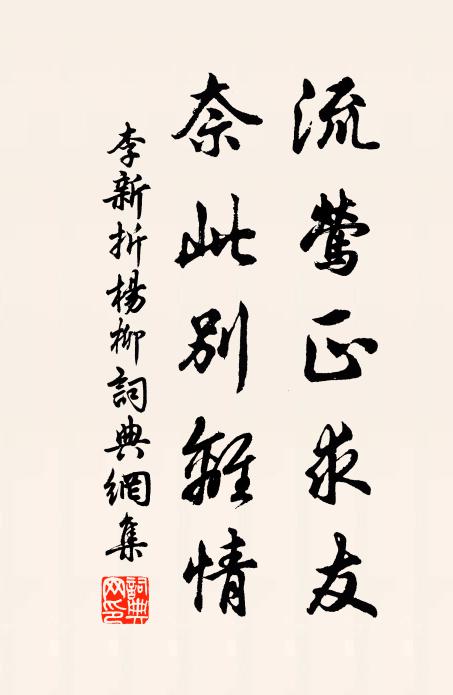 流鶯正求友
奈此別離情
李新折楊柳詞典網集
詞典网印